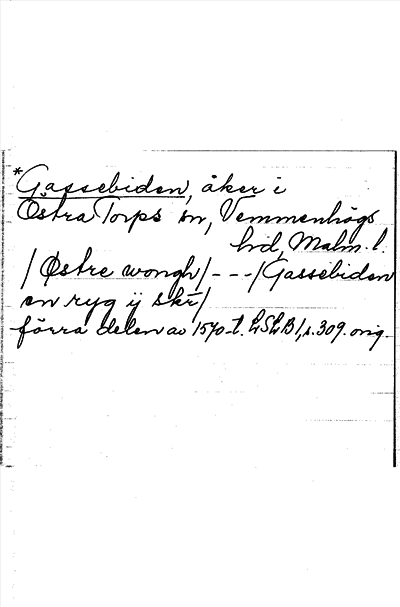 *Gassebiden, åker i
Östra Torps sn, Vemmenhögs
hd, Malm. l.
/Østre wongh/---/Gassebiden
en ryg ij skr/
förra delen av 1570-t. LSLB 1, s. 309. orig.